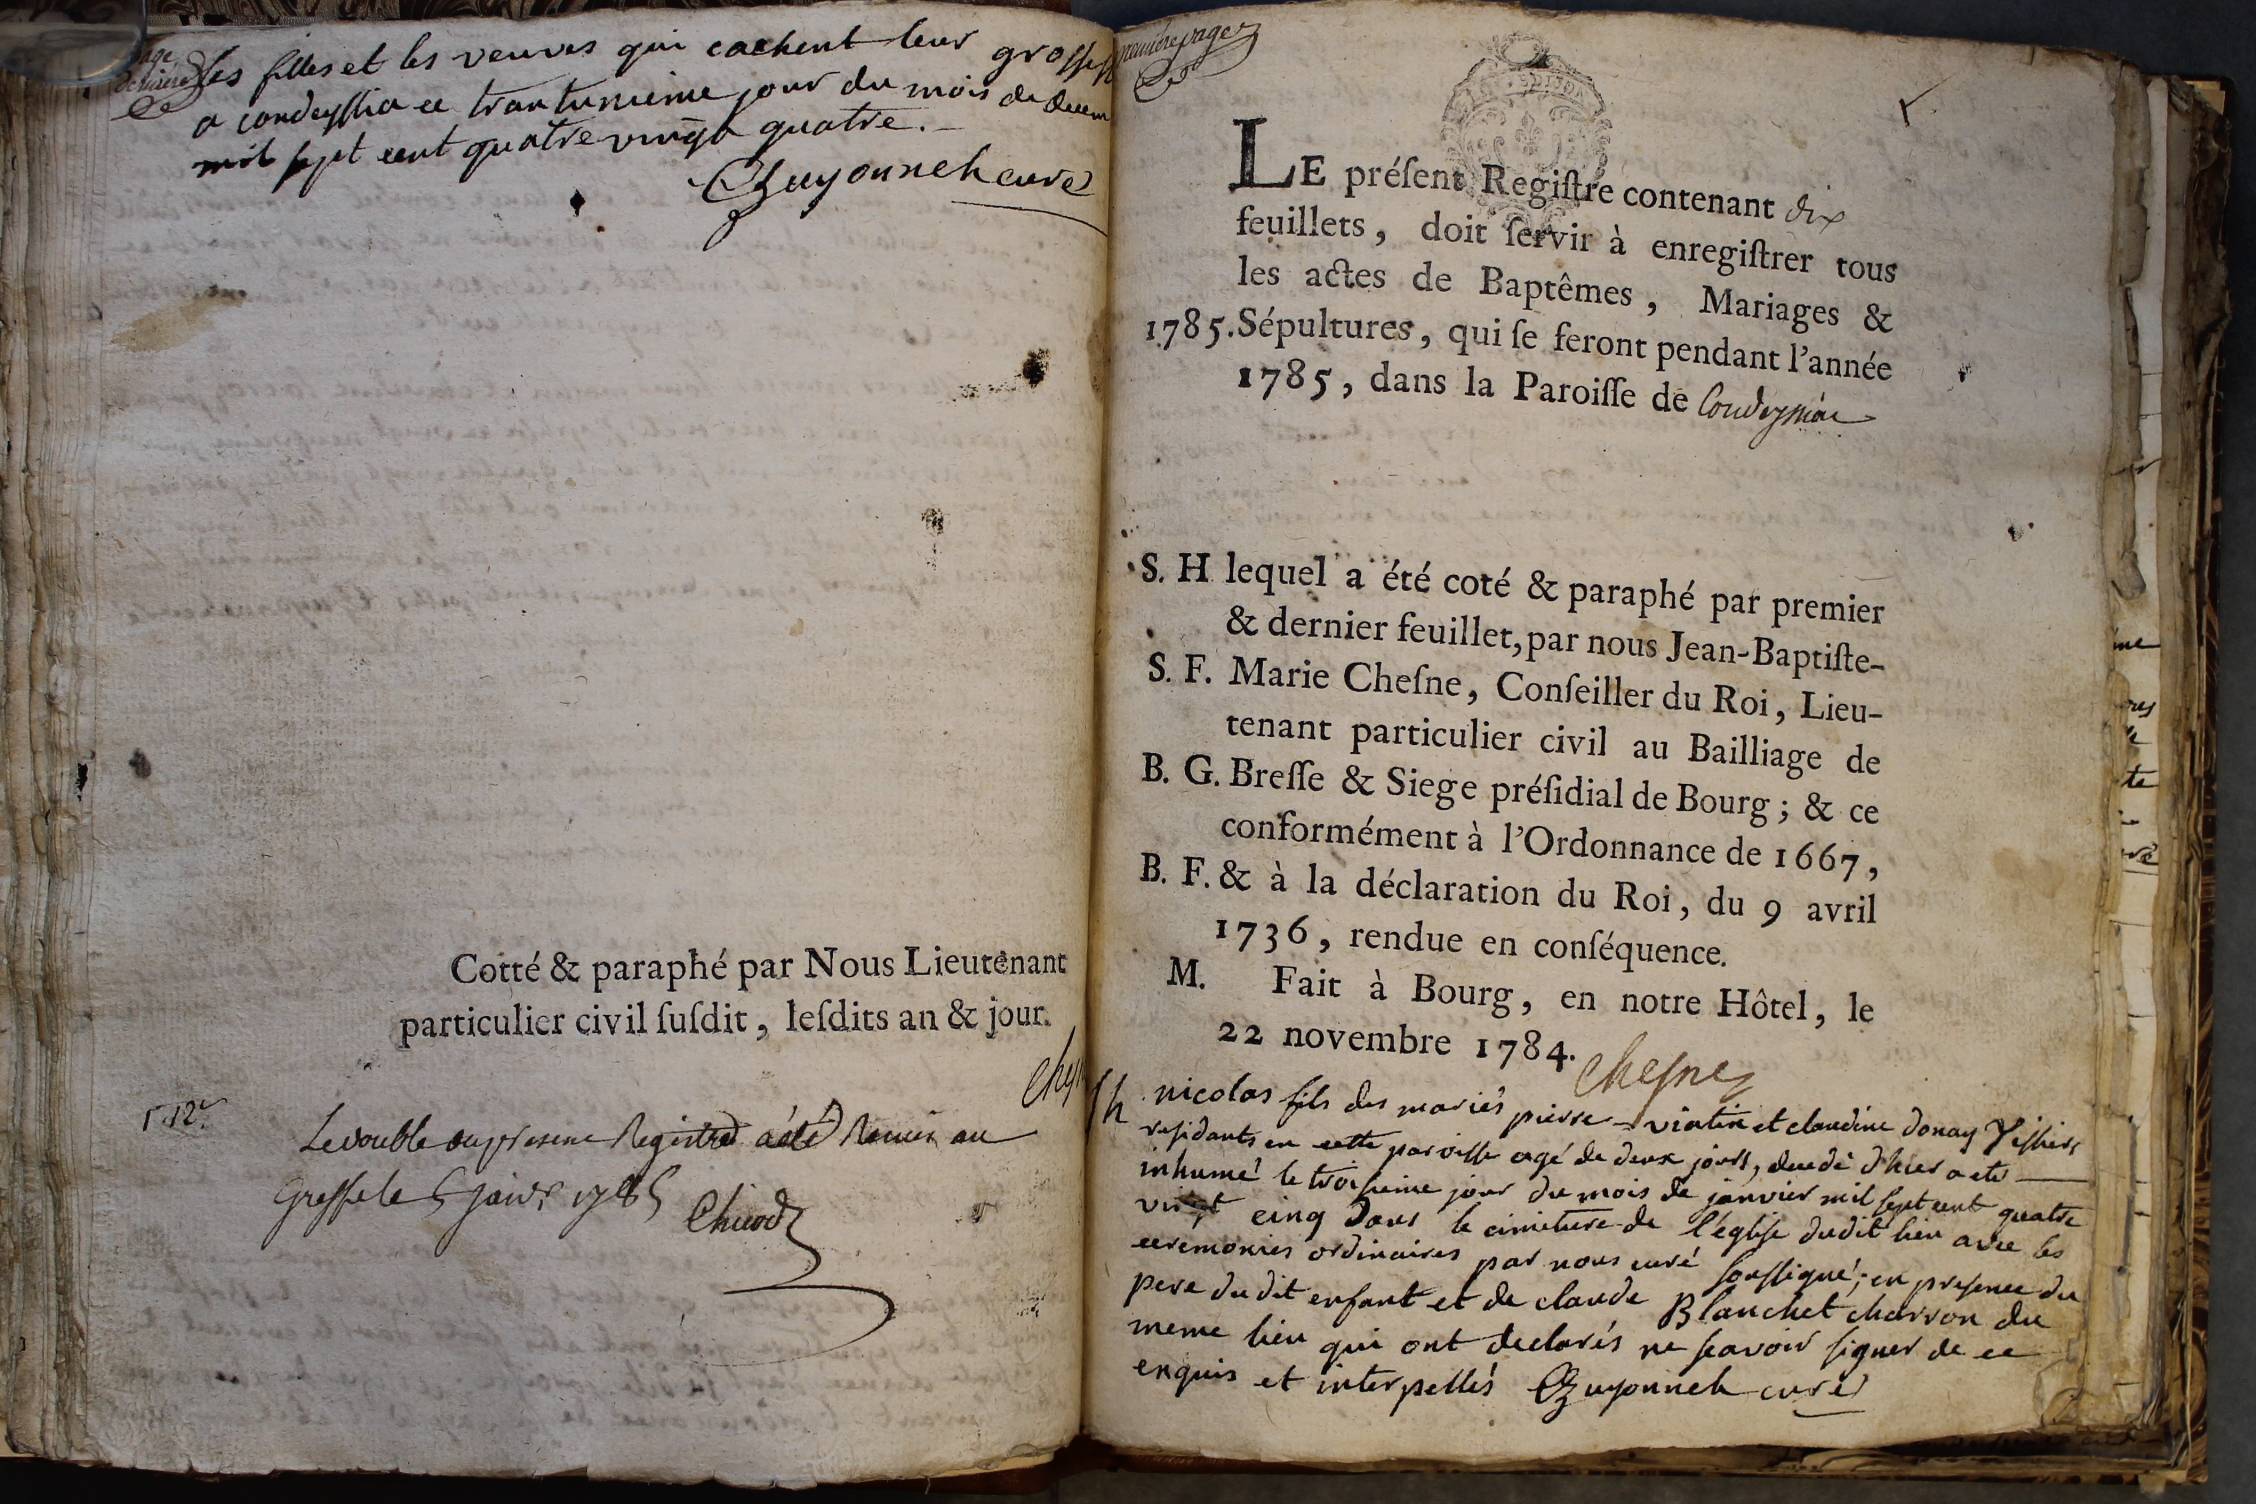 page
derniere
les filles et les veuves qui cachent leur grosses
a condeyssia ce trantunieme jour du mois de decem
mil sept cent quatre vingt quatre.
Guyonnet curé
Cotté & paraphé par Nous Lieutenant
particulier civil ſuſdit, leſdits an & jour.
Chesn
Le double du present Registre a été Remis au
Greffe le 5 janvr 1785
premiere page
LE préſent Regiſtre contenant dix
feuillets, doit ſervir à enregiſtrer tous
les actes de Baptêmes, Mariages &
1785. Sépultures, qui ſe feront pendant l'année
1785, dans la Paroiſſe de Condeyssiat
S. H lequel a été coté & paraphé par premier
& dernier feuillet, par nous Jean-Baptiſte-
S. F. Marie Cheſne, Conſeiller du Roi, Lieu-
tenant particulier civil au Bailliage de
B. G. Breſſe & Siege préſidial de Bourg; & ce
conformément à l'Ordonnance de 1667,
B. F. & à la déclaration du Roi, du 9 avril
1736, rendue en conſéquence.
M. Fait à Bourg, en notre Hôtel, le
22 novembre 1784.
Chesne
Sh nicolas fils des mariés pierre viatin et claudine donay
residants en cette paroisse agé de deux jours, decedé d'hier a eté
inhumé le troisieme jour du mois de janvier mil sept cent quatre
vingt cinq dans le cimetiere de l'eglise dudit lieu avec les
ceremonies ordinaires par nous curé soussigné; en presence du
pere du dit enfant et de claude Blanchet charron du
meme lieu qui ont declarés ne scavoir signer de ce
enquis et interpellés Guyonnet curé